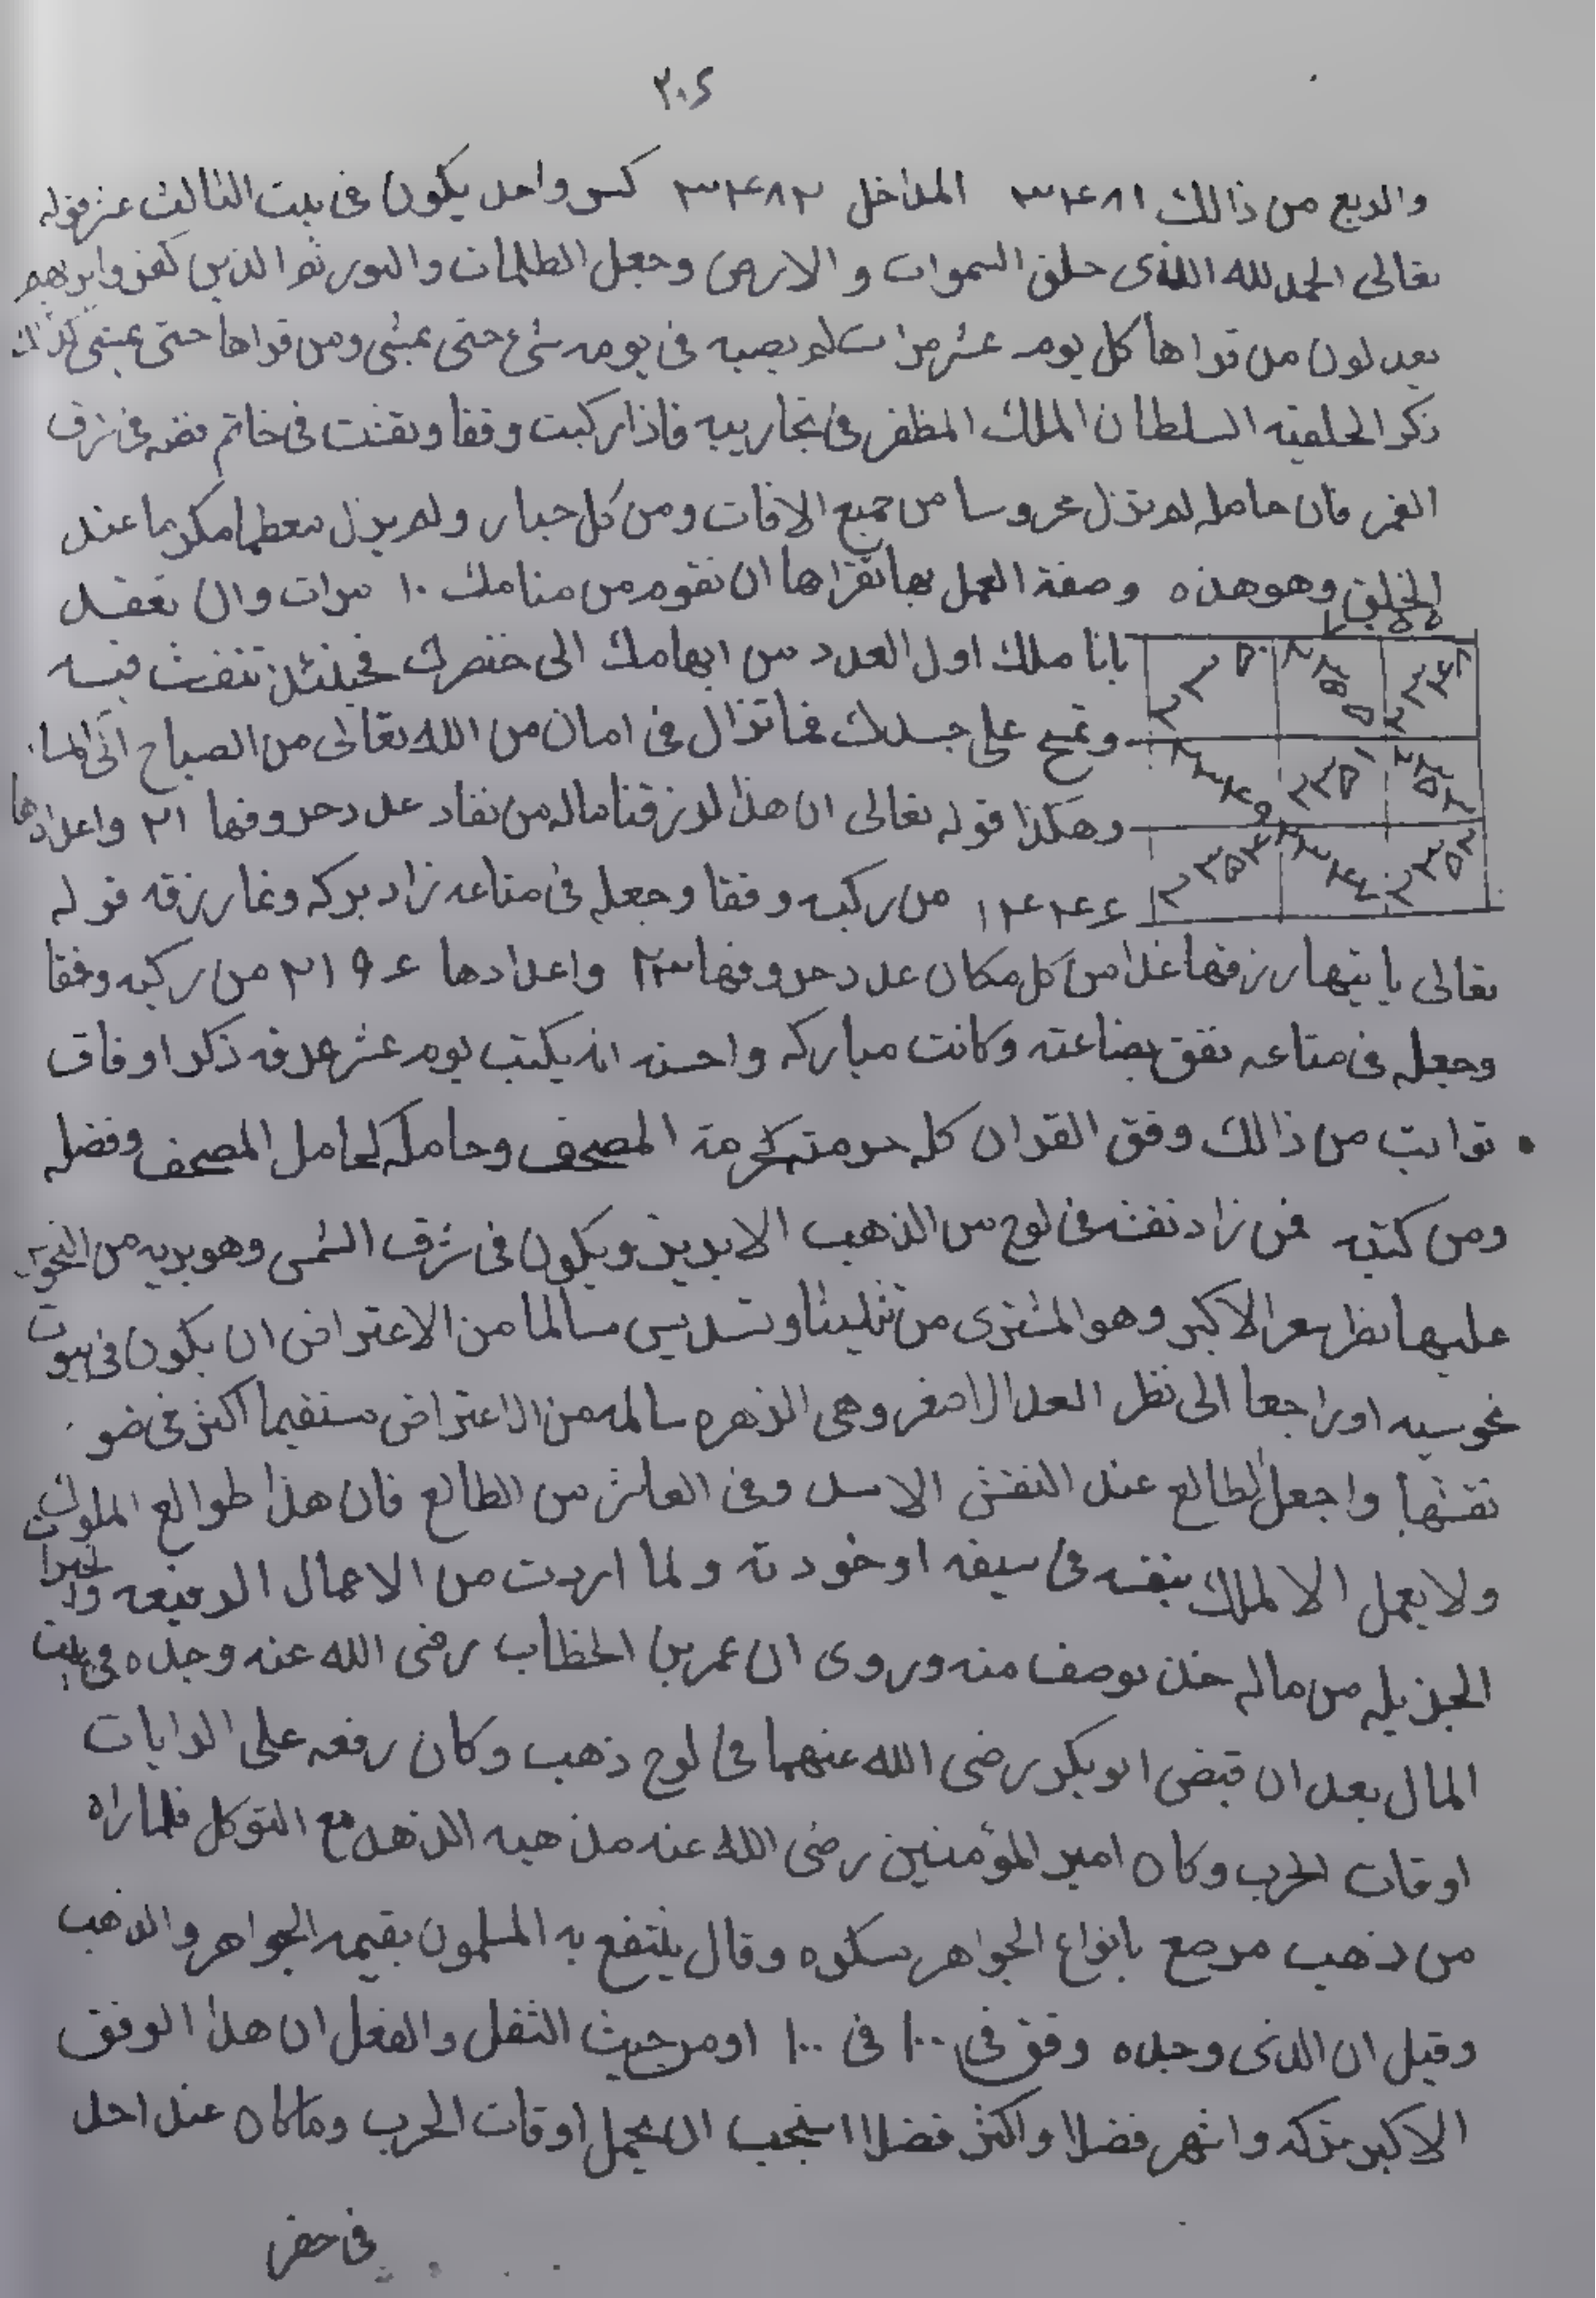 ٣٠٤
والربع من ذالك ٣٣٤٨١ المداخل ٣٣٤٨٢ كسر واحد يكون فى بيت الثالث عشر قوله
تعالى الحمد لله الذى خلق السموات و الارض وجعل الظلمات والنور ثم الذين كفروا بربهم
يعدلون من قراها كل يوم عشر مرات لم يصبه فى يومه شئ حتى يمشى ومن قراها حتى يمشى كذالك
ذكر الخليفه السلطان الملك المظفر فى تجاريبه فاذا ركبت وفقا ونقشت فى خاتم فضه فى شرف
القمر فان حامله لم تزل محروسا من جميع الافات ومن كل جبار ولم يزل معظما مكرما عند
الخلق وهو هذه وصفة العمل بها تقراها ان تقوم من منامك ١٠ مرات وان تعقد
بانا ملك اول العدد من ابهامك الى خنصرك فحينئذ تنفث فيه
وتمسح على جسدك فما تزال فى امان من الله تعالى من الصباح الى المسا
وهكذا قوله تعالى ان هذا لرزقنا ماله من نفاد عدد حروفها ٢١ واعدادها
١٢٤٤٤ من ركبه وفقا وجعله فى متاعه زاد بركه ونما رزقه قوله
تعالى ياتيها رزقها غدا من كل مكان عدد حروفها ٢٣ واعدادها ٢١٩٤ من ركبه وفقا
وجعله فى متاعه نفق بضاعته وكانت مباركه واحسنه انه يكتب يوم عشر عرفه ذكر اوفاق
توابت من ذالك وفق القران كله حرمته كحرمة المصحف وحامله كحامل المصحف وفضله
ومن كتبه فمن زاد نقشه فى لوح من الذهب الابريز ويكون فى شرف الشمس وهو بريه من النحو
عليها نظر سعر الاكبر وهو المشترى من تثليثا وتسديس سالما من الاعتراض ان يكون فى بيوت
نحوسيه اوراجعا الى نظر العد الاصغر وهى الزهره سالمه من الاعتراض مستقيما اكثر فى ضو
نقشها واجعل الطالع عند النقش الاسد وفى العاشر من الطالع فان هذا طوالع الملوك
ولا يعمل الا لملك بنقشه فى سيفه او خودته ولما اردت من الاعمال الرفيعه
الجزيله من ماله خذن يوصف منه وروى ان عمر بن الخطاب رضى الله عنه وجده فى بيت
المال بعد ان قبض ابو بكر رضى الله عنهما فى لوح ذهب وكان رفعه على الرايات
اوقات الحرب وكان امير المؤمنين رضى الله عنه مذهبه الزهد مع التوكل فلما راه
من ذهب مرصع بانواع الجواهر سكوه وقال ينتفع به المسلمون بقيمه الجواهر والذهب
وقيل ان الذى وجده وفق فى ١٠٠ فى ١٠٠ اومن حيث الثقل والفعل ان هذا الوفق
الاكبر بركه واشهر فضلا واكثر فضلا استحب ان يحمل اوقات الحرب وماكان عند احد
فى حضر